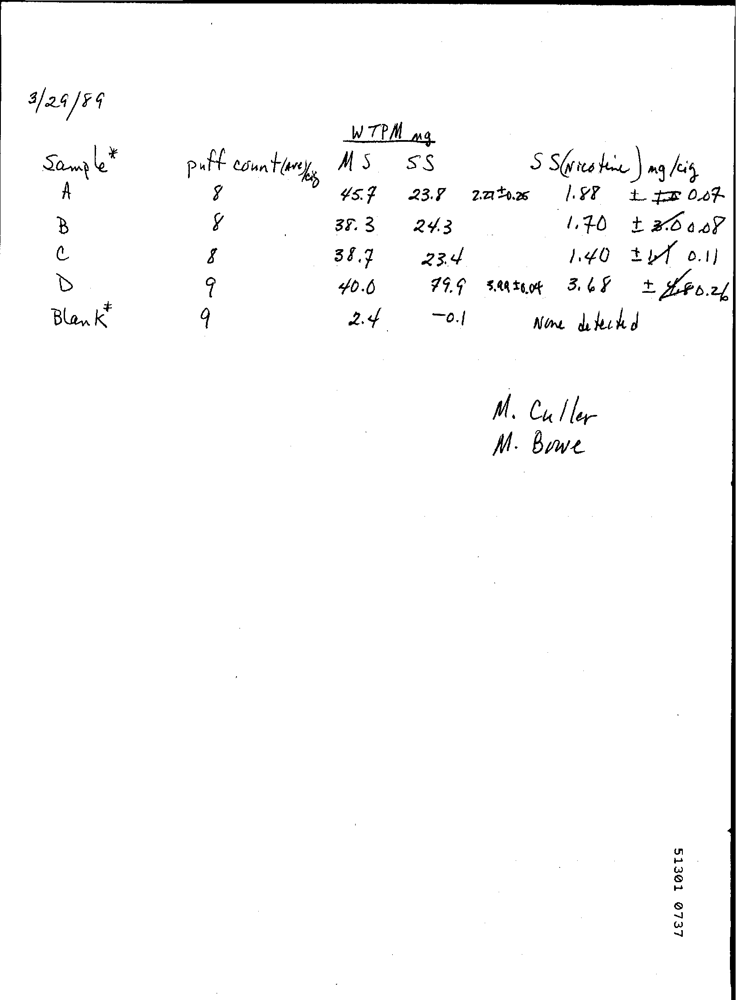 3/29/89
WTPM mg
Sample* puff count (Ave)/cig MS SS SS (Nicotine) mg/cig
A 8 45.7 23.8 2.27±0.26 1.88 ± 0.07
B 8 38.3 24.3 1.70 ± 0.08
C 8 38.7 23.4 1.40 ± 0.11
D 9 40.0 79.9 3.99±0.04 3.68 ± 0.26
Blank* 9 2.4 -0.1 None detected
M. Culler
M. Bowe
51301 0737